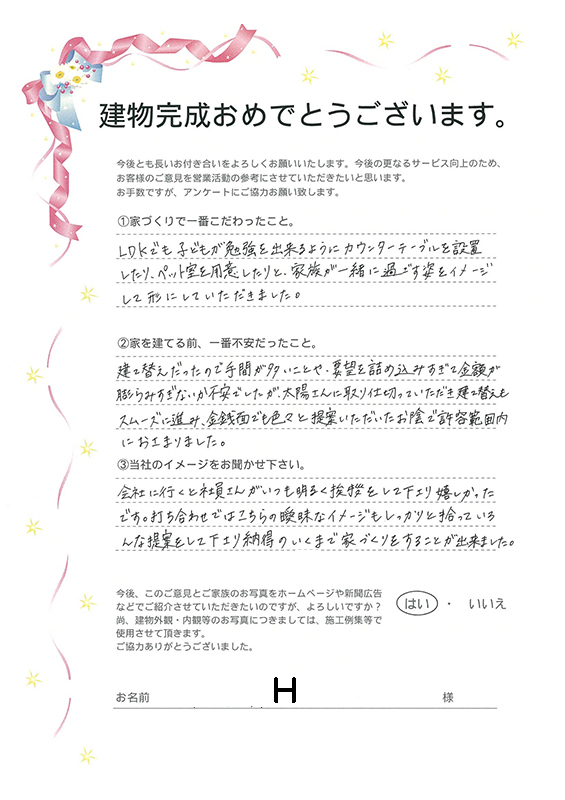 建物完成おめでとうございます。
今後とも長いお付き合いをよろしくお願いいたします。今後の更なるサービス向上のため、
お客様のご意見を営業活動の参考にさせていただきたいと思います。
お手数ですが、アンケートにご協力お願い致します。
①家づくりで一番こだわったこと。
LDKでも子どもが勉強を出来るようにカウンターテーブルを設置
したり、ペット室を用意したりと、家族が一緒に過ごす姿をイメージ
して形にしていただきました。
②家を建てる前、一番不安だったこと。
建て替えだったので手間が多いことや、要望を詰め込みすぎて金額が
膨らみすぎないか不安でしたが、太陽さんに取り仕切っていただき建て替えも
スムーズに進み、金銭面でも色々と提案いただいたお陰で許容範囲内
におさまりました。
③当社のイメージをお聞かせ下さい。
会社に行くと社員さんがいつも明るく挨拶をして下さり嬉しかった
です。打ち合わせではこちらの曖昧なイメージもしっかりと拾っていろ
んな提案をして下さり納得のいくまで家づくりをすることが出来ました。
今後、このご意見とご家族のお写真をホームページや新聞広告
などでご紹介させていただきたいのですが、よろしいですか？
はい ・ いいえ
尚、建物外観・内観等のお写真につきましては、施工例集等で
使用させて頂きます。
ご協力ありがとうございました。
お名前 H 様